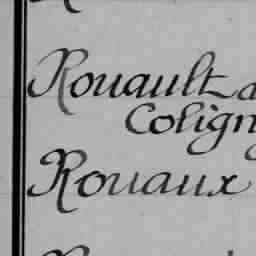 Rouault d
Colign
Rouaux